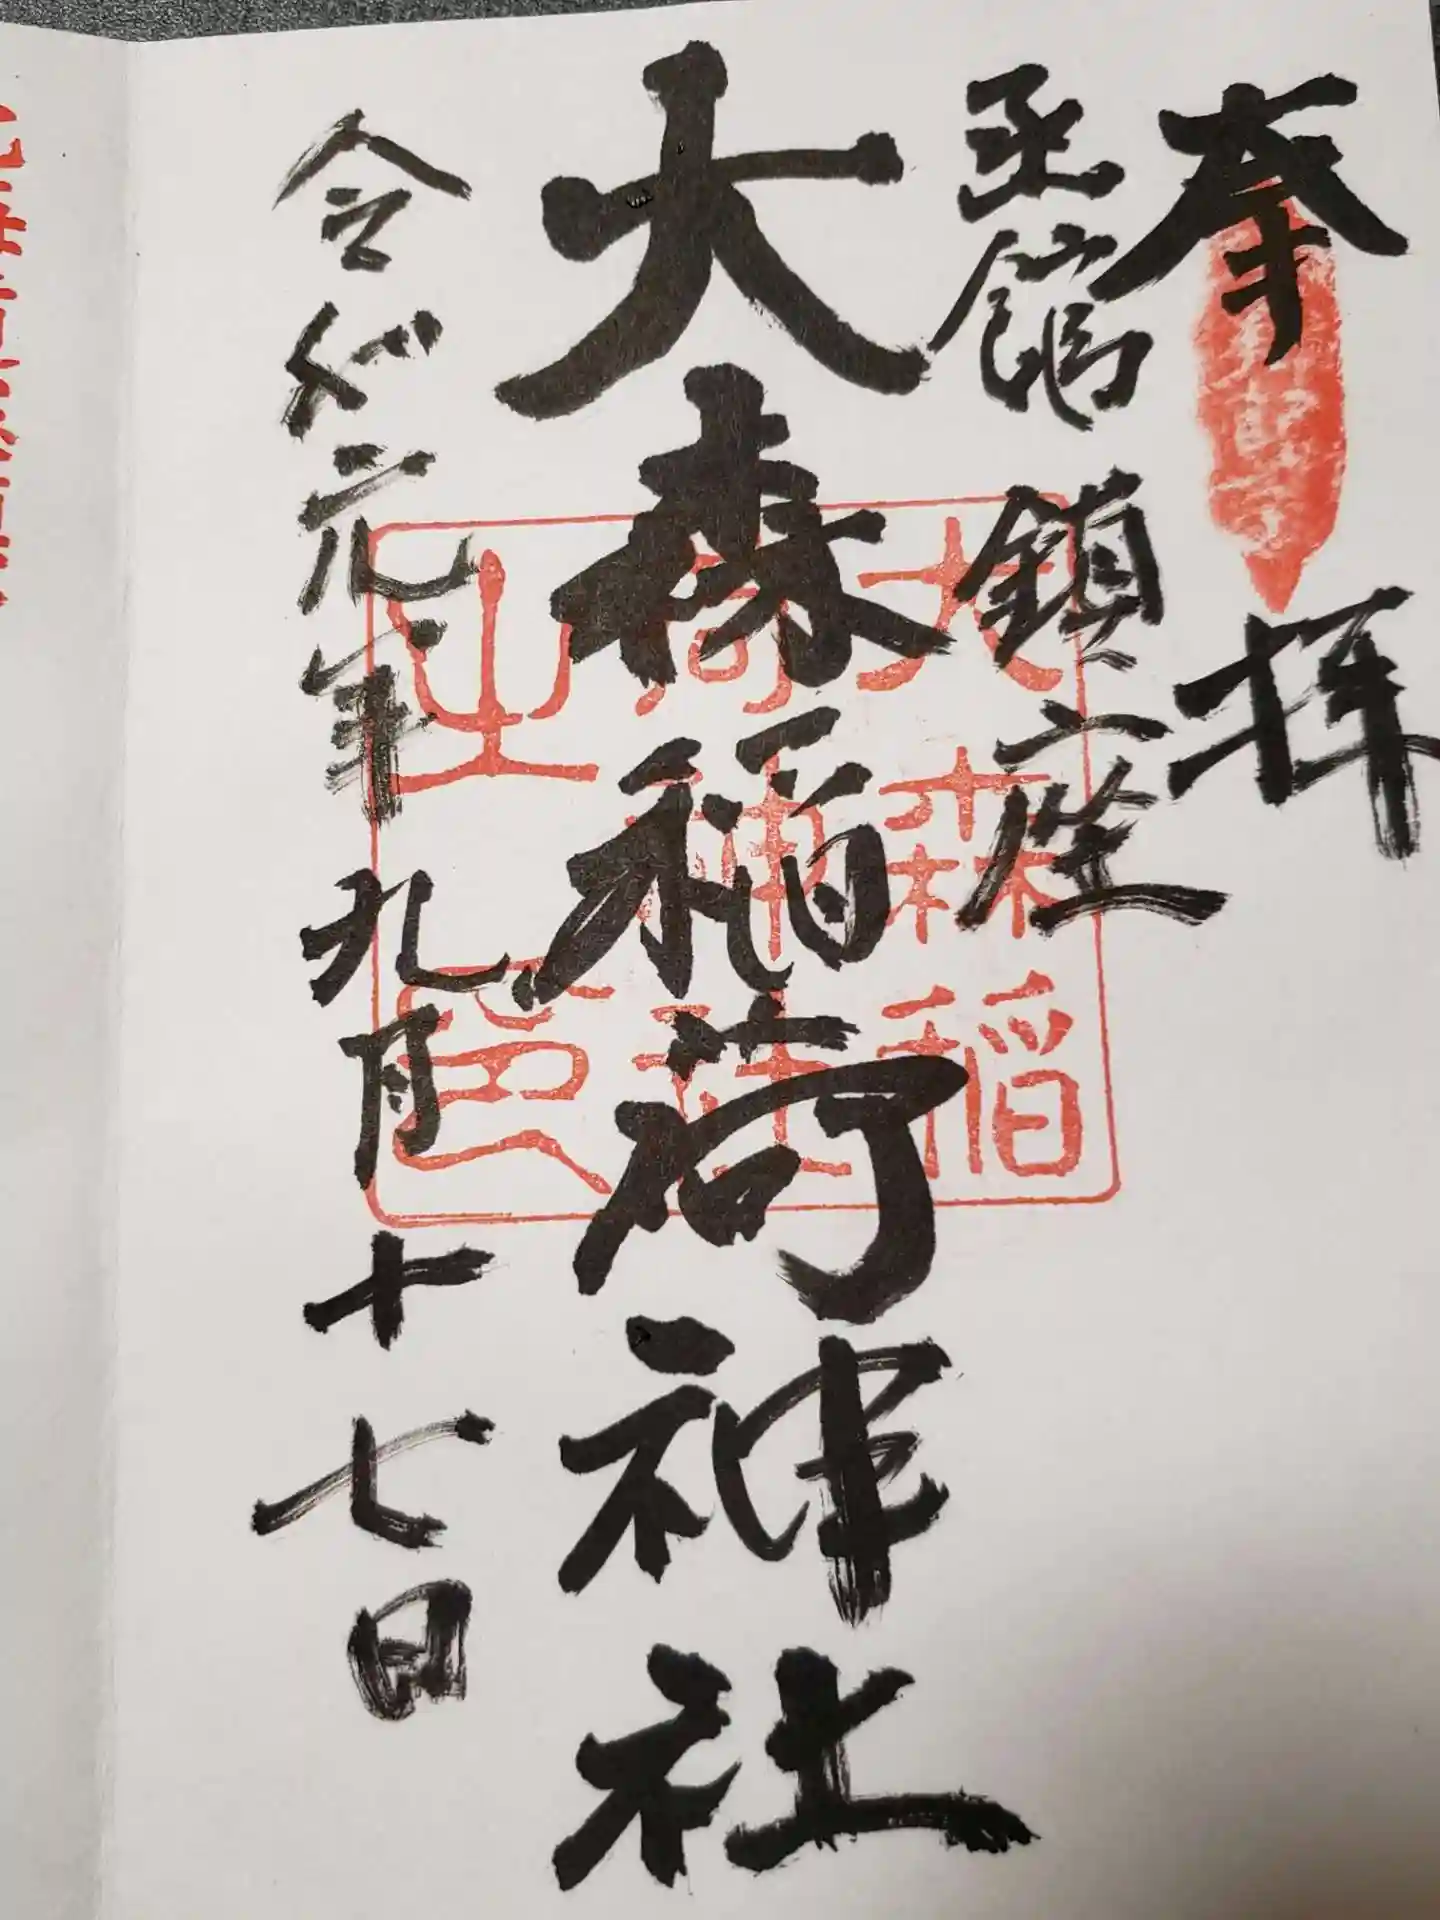 奉拝
函館鎮座
大森稲荷神社
令和元年九月十七日
大森稲
荷神社
之印